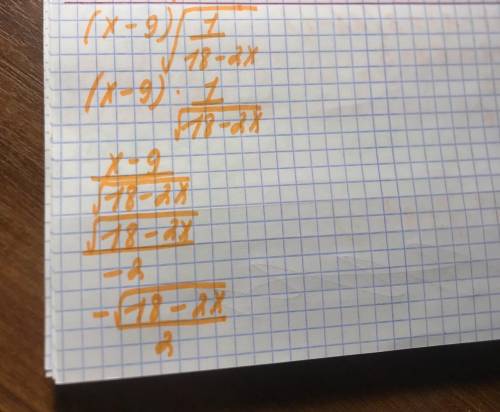 (x-9)√(1/(18-2x))
(x-9)·1/√(18-2x)
(x-9)/√(18-2x)
√(18-2x)/-2
-√(18-2x)/2